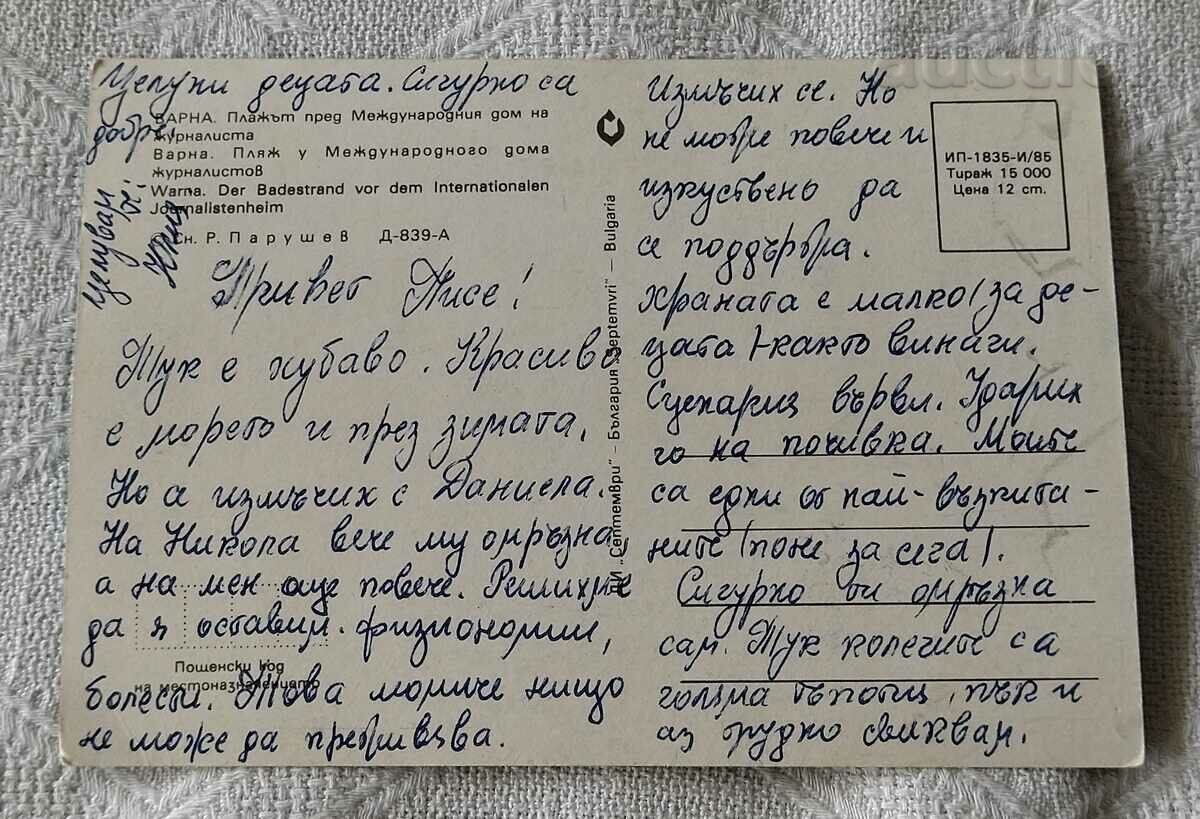 Целуни децата. Сигурно са
добре!
Целувам
те!
ВАРНА. Плажът пред Международния дом на
журналиста
Варна. Пляж у Международного дома
журналистов
Warna. Der Badestrand vor dem Internationalen
Journalistenheim
Сн. Р. Парушев Д-839-А
Привет Писе!
Тук е хубаво. Красиво
е морето и през зимата.
Но се измъчих с Даниела.
На Никола вече му омръзна,
а на мен още повече. Решихме
да я оставим. физиономии,
болести. Това момиче нищо
не може да преживява.
Пощенски код
на местоназначението
"Септември" – България "Septemvri" – Bulgaria
Измъчих се. Но
не може повече и
изкуствено да
се поддържа.
Храната е малко (за де-
цата) - както винаги.
Сценария върви. Ударих
го на почивка. Моите
са едни от най-възпита-
ните (поне за сега).
Сигурно ти омръзна
сам. Тук колегите са
голяма тъпотия, пък и
аз трудно свиквам.
ИП-1835-И/85
Тираж 15 000
Цена 12 ст.
auction